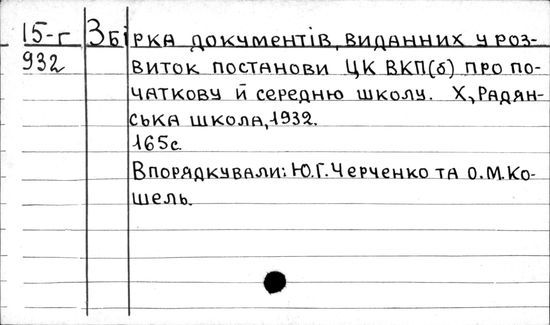 15-г Збірка документів, виданних у роз-
932 виток постанови ЦК ВКП(б) про по-
чаткову й середню школу. Х, Радян-
ська школа, 1932.
165с.
Впорядкували: Ю.Г. Черченко та О.М. Ко-
шель.